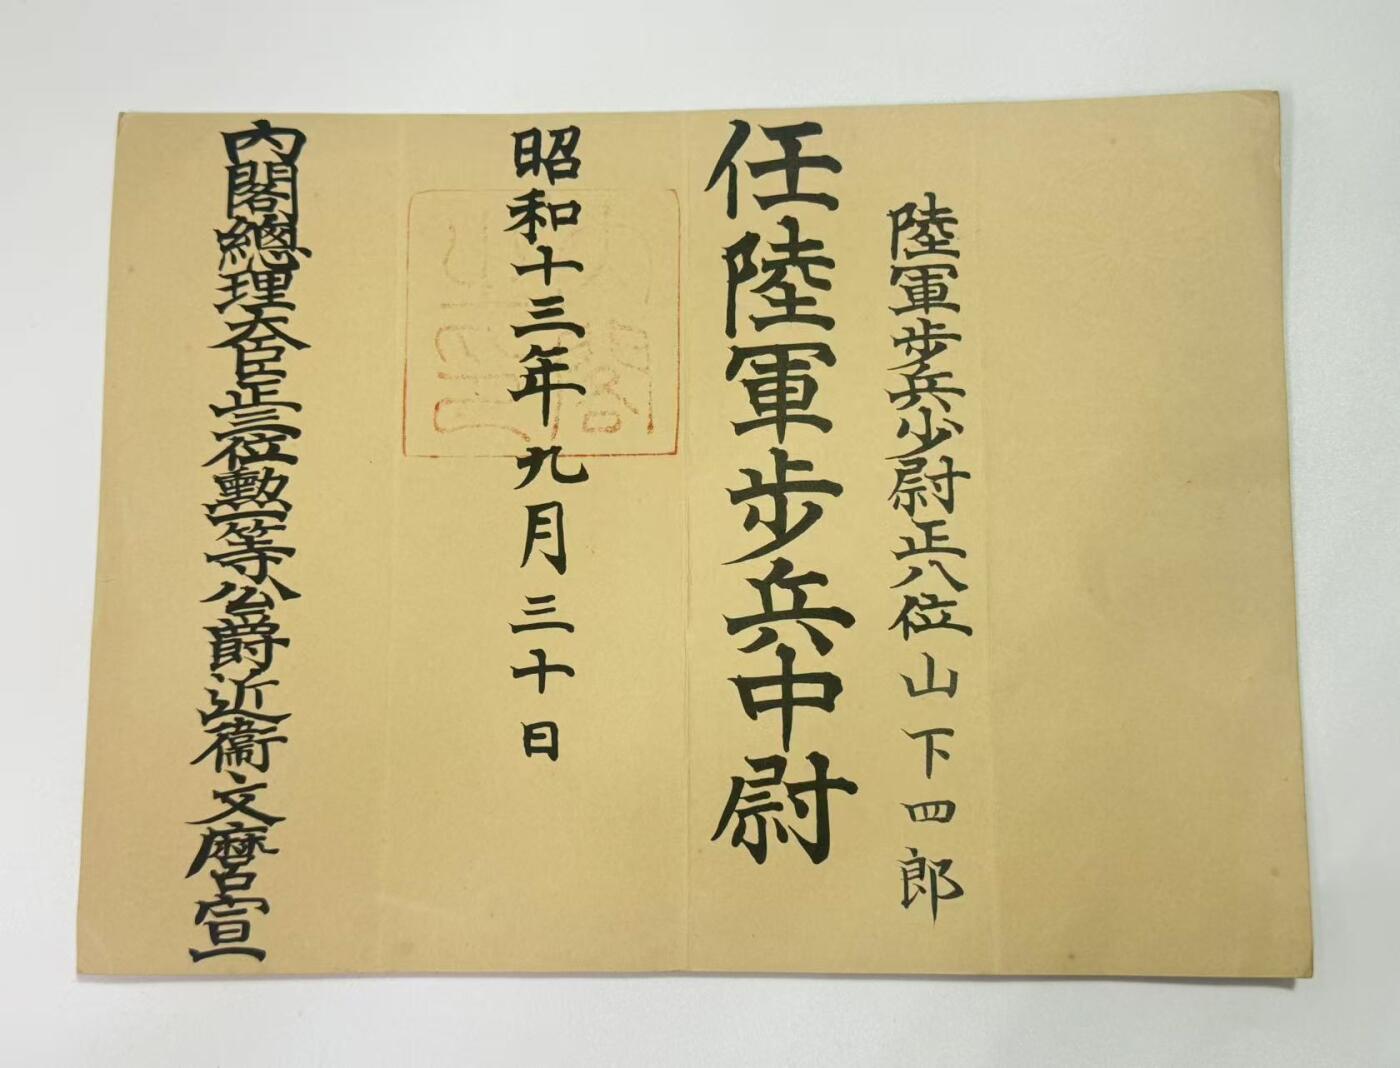 陸軍歩兵少尉正八位山下四郎
任陸軍歩兵中尉
昭和十三年九月三十日
內閣總理大臣正三位勲一等公爵近衞文麿宣